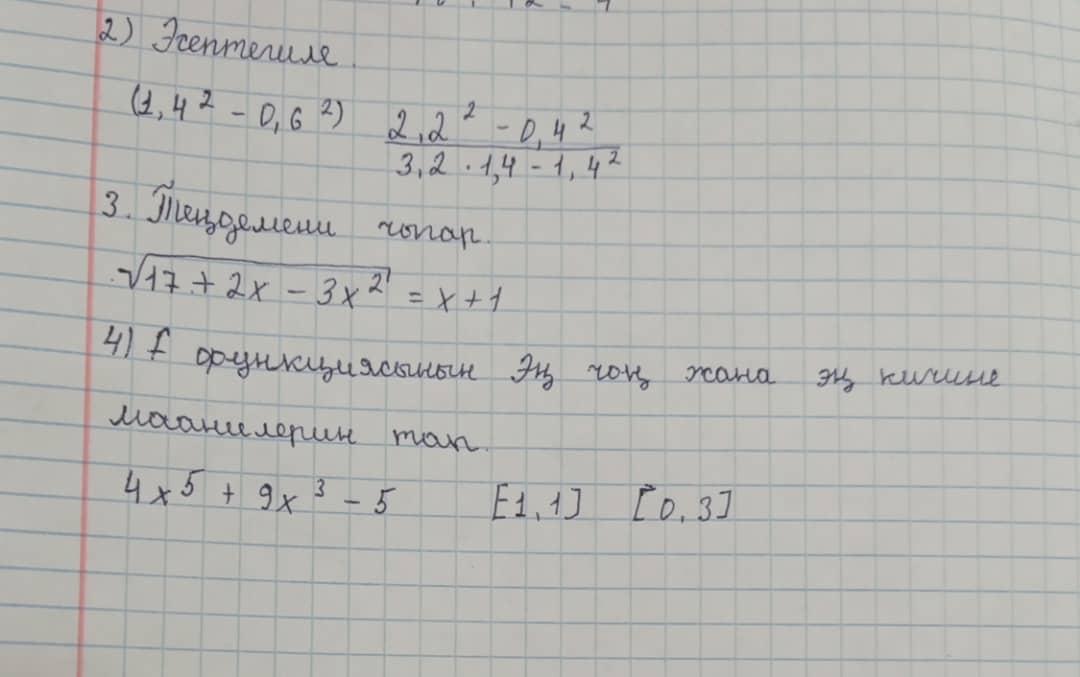 2) Эсептегиле.
(1,4² - 0,6²) (2,2² - 0,4²)/(3,2 · 1,4 - 1,4²)
3. Теңдемени чыгар.
√(17 + 2x - 3x²) = x + 1
4) f функциясынын Эң чоң жана эң кичине
маанилерин тап.
4x⁵ + 9x³ - 5 [1,1] [0,3]